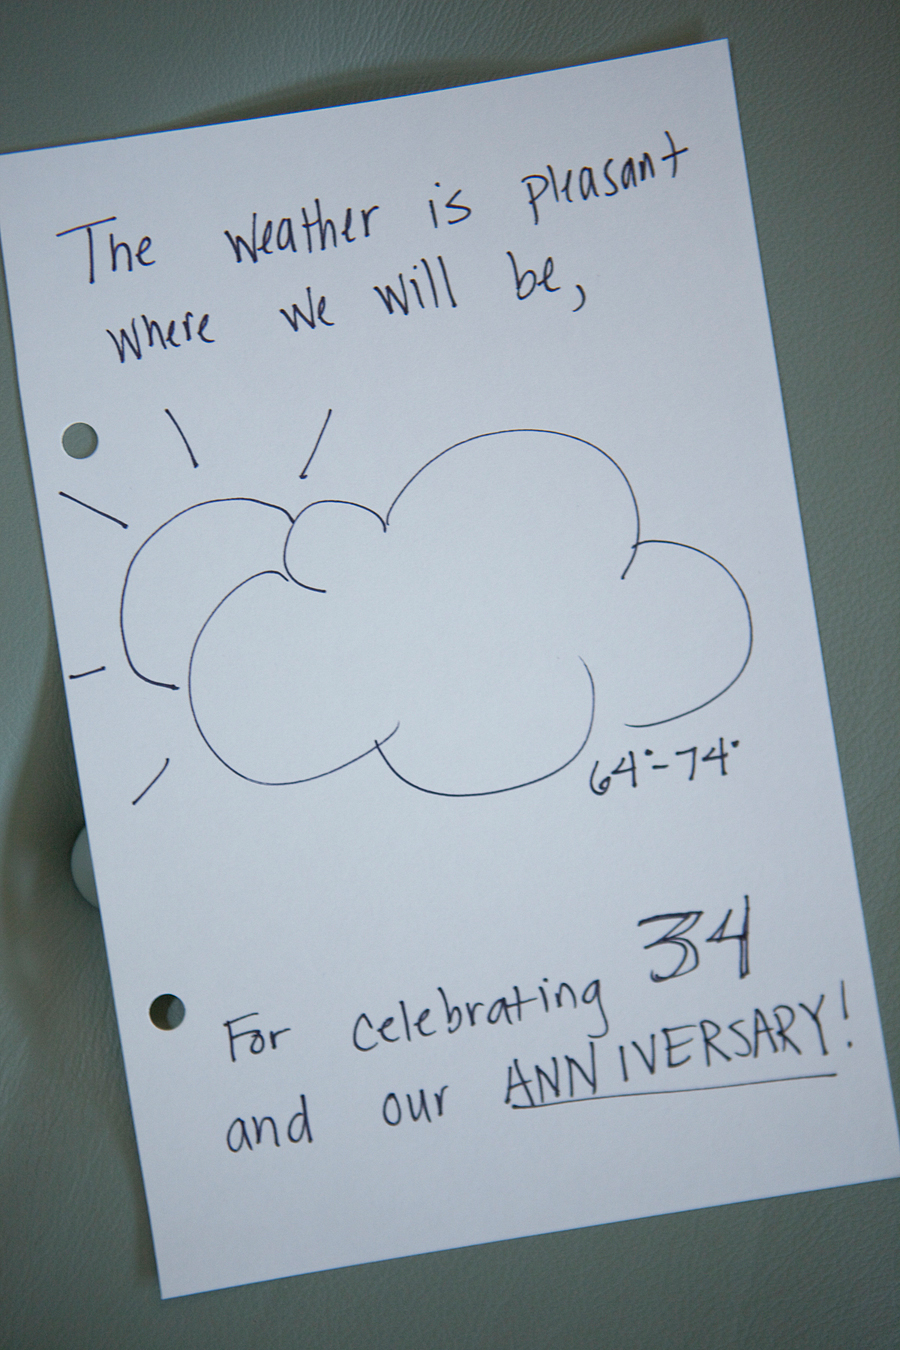 The weather is pleasant
where we will be,
64°-74°
For celebrating 34
and our ANNIVERSARY!